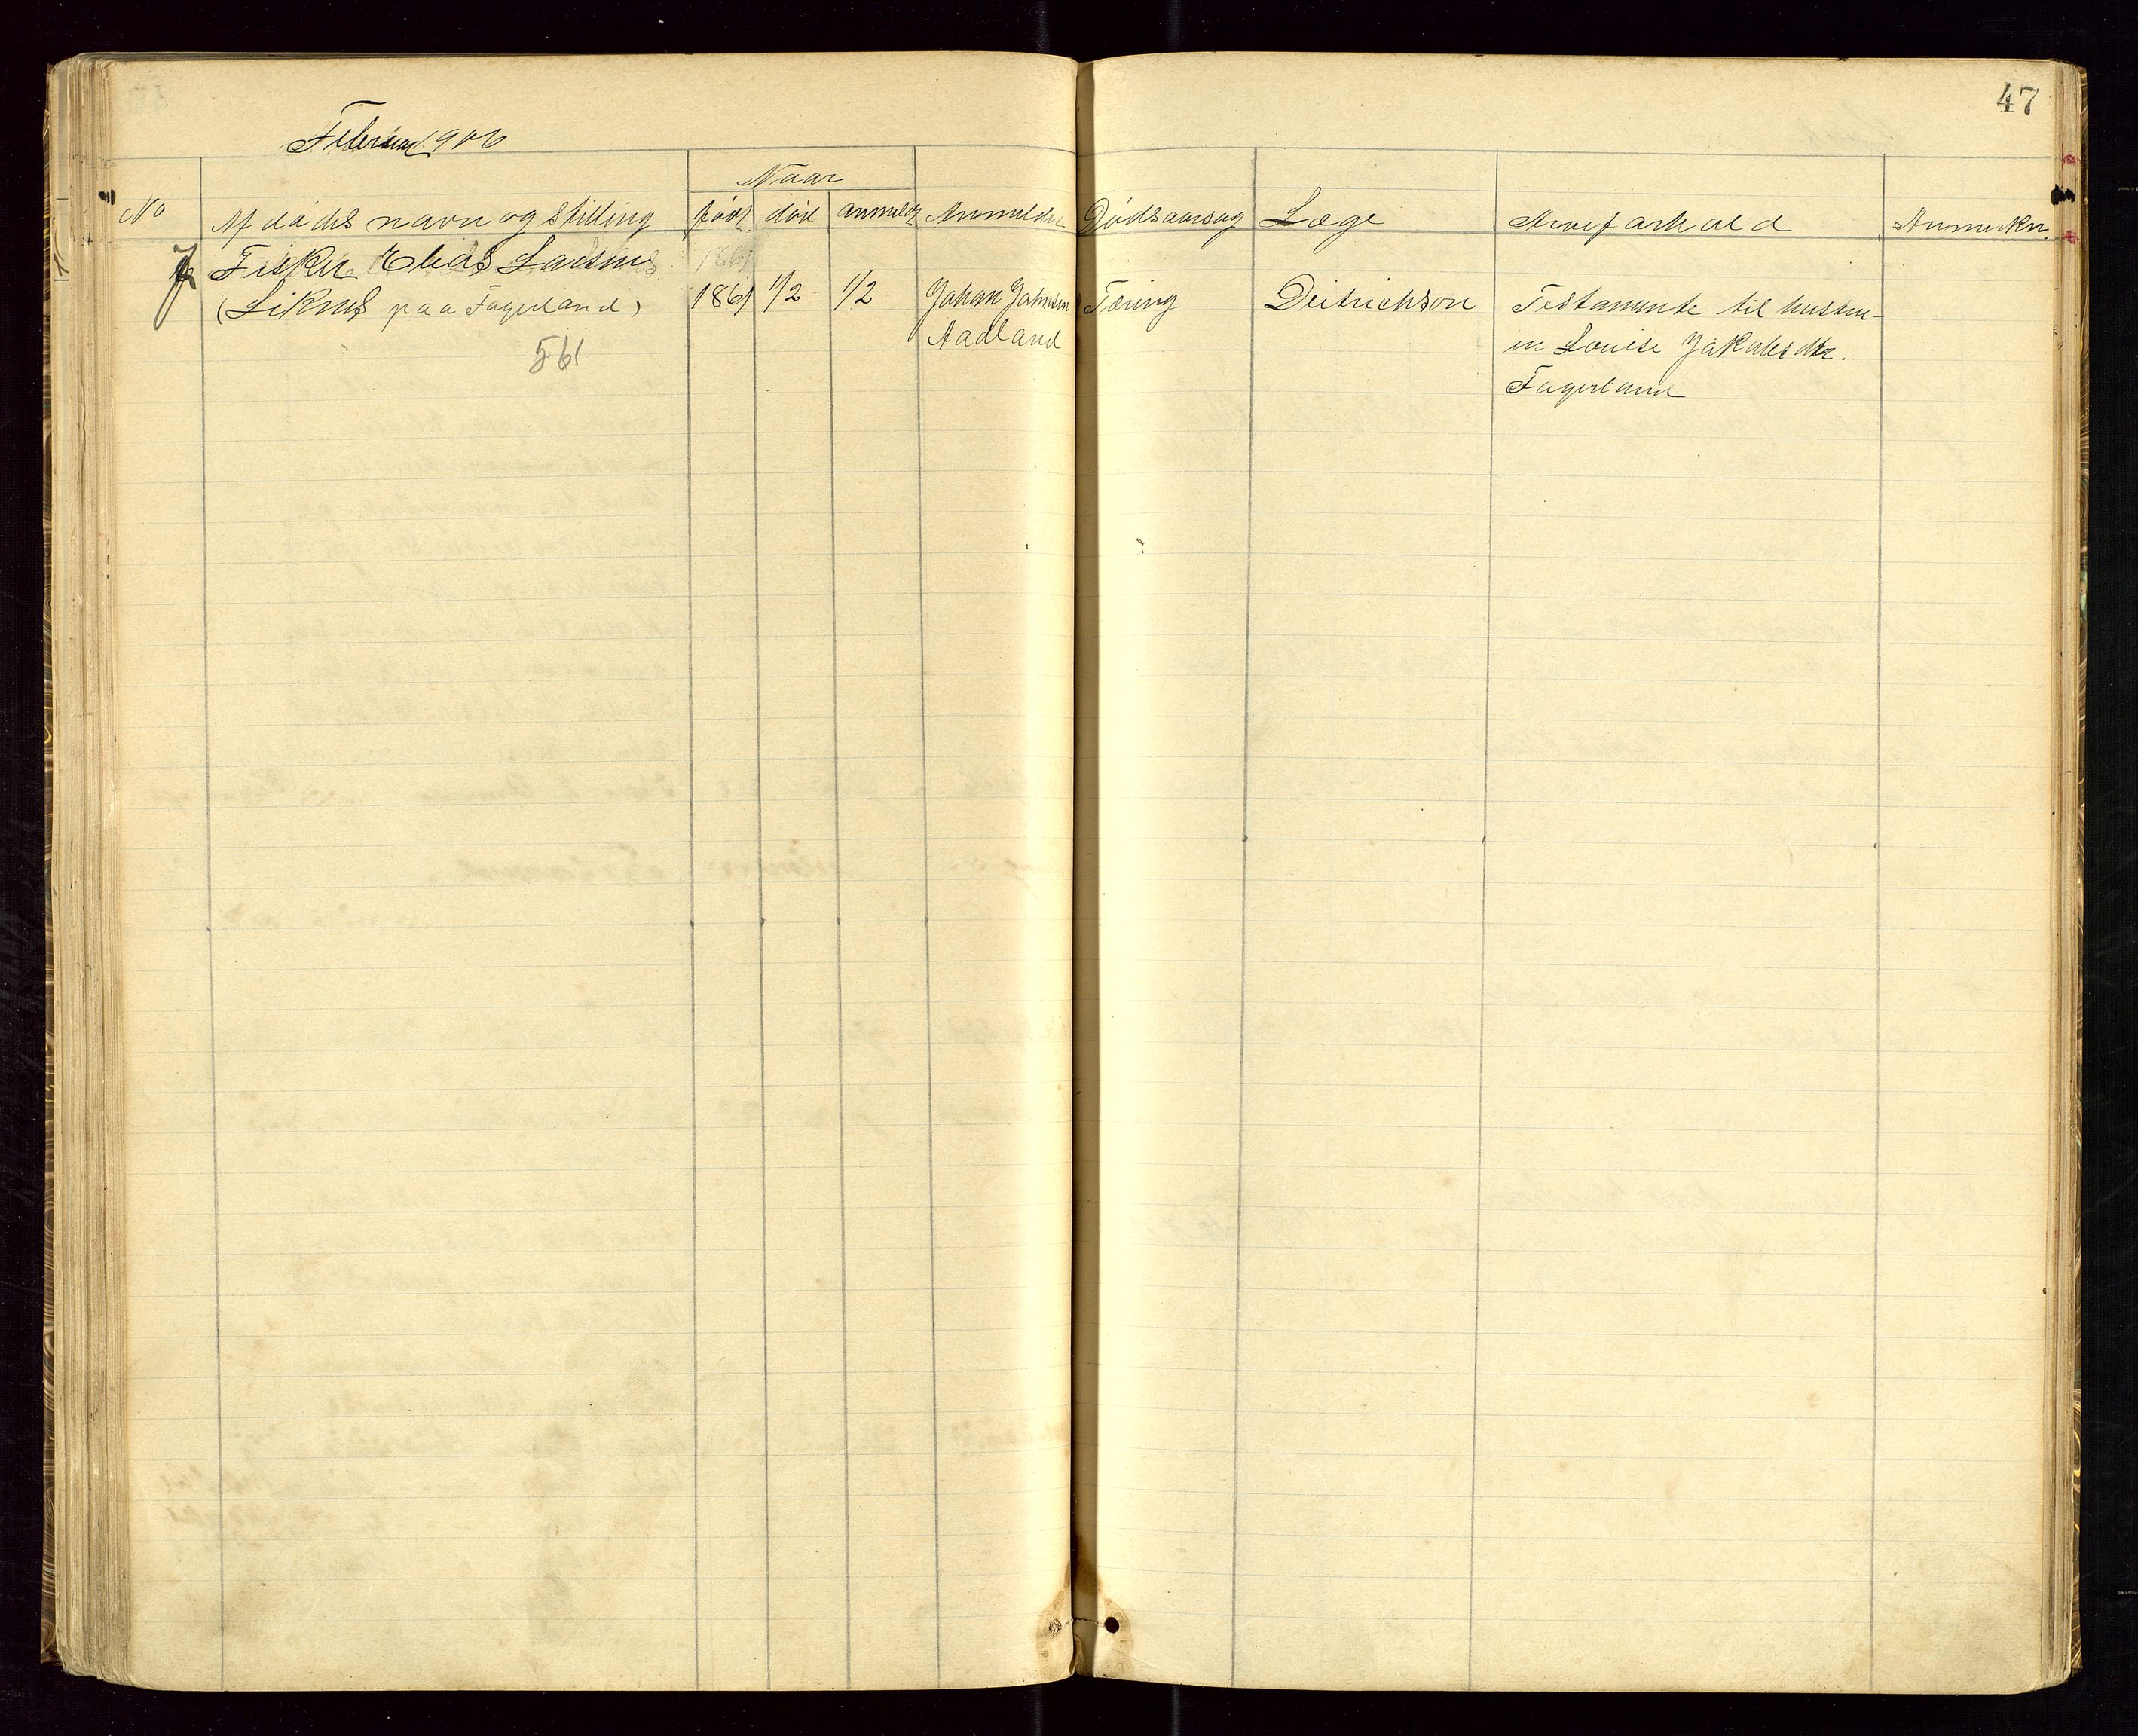 47
Februar 1906
Naar
No Afdødes navn og stilling født død anmeldt Anmelder Dødsaarsag Læge Arveforhold Anmerkn.
7 Fisker Elias Larsen 1861
(Liknes paa Fagerland) 1861 1/2 1/2 Johan Johnsen Tæring Deitrichson Testamente til hustru-
Aadland en Louise Jakobsdtr.
561 Fagerland